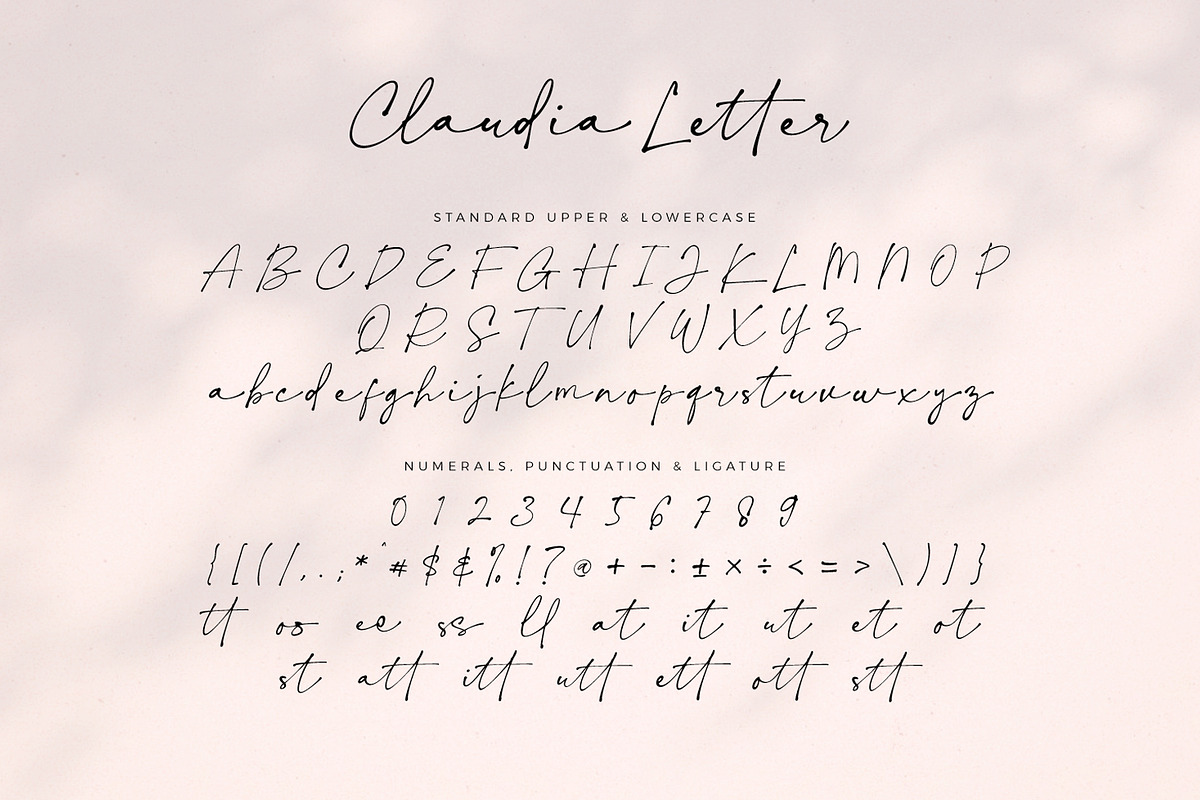 Claudia Letter
STANDARD UPPER & LOWERCASE
A B C D E F G H I J K L M N O P
Q R S T U V W X Y Z
a b c d e f g h i j k l m n o p q r s t u v w x y z
NUMERALS, PUNCTUATION & LIGATURE
0 1 2 3 4 5 6 7 8 9
{ [ ( / , . ; * ^ # $ & % ! ? @ + - : ± × ÷ < = > \ ) ] }
tt os ee ss ll at it ut et ot
st att itt utt ett ott stt